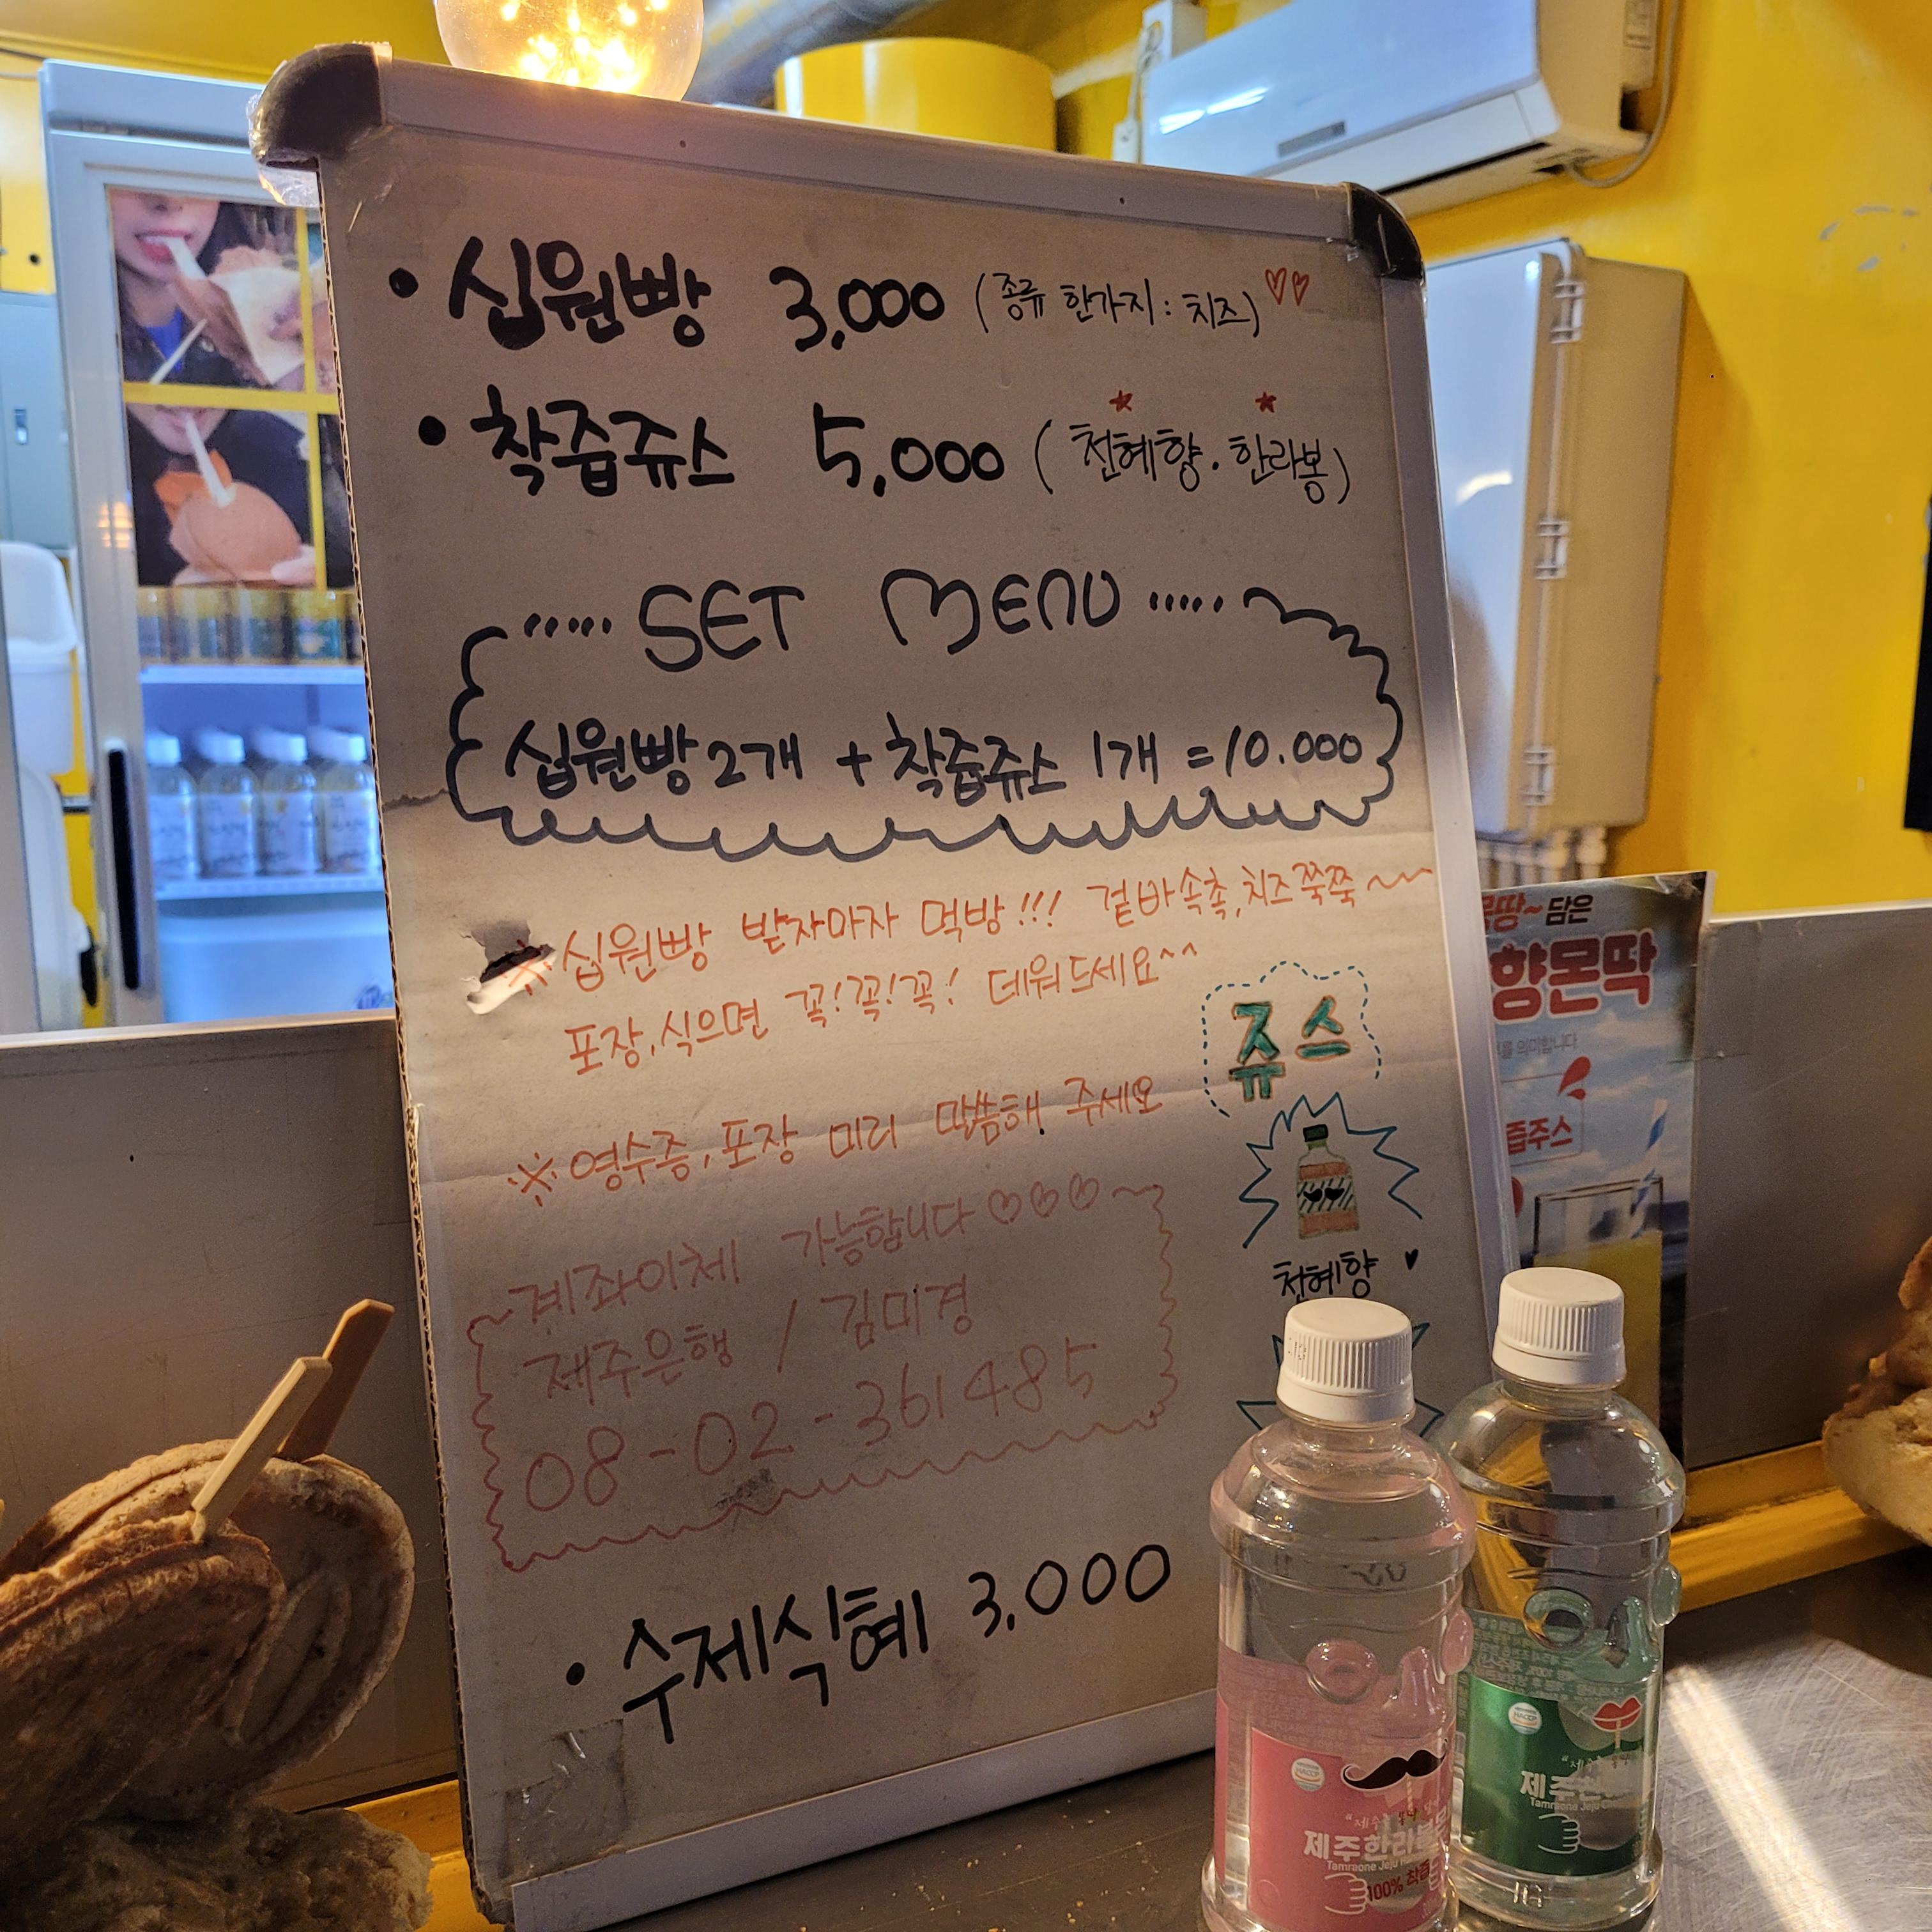 • 십원빵 3,000 (종류 한가지 : 치즈)♡♡
• 착즙쥬스 5,000 (천혜향 . 한라봉)
····· SET MENU ·····
십원빵 2개 + 착즙쥬스 1개 = 10.000
※ 십원빵 받자마자 먹방!!! 겉바속촉, 치즈쭉쭉~~
포장, 식으면 꼭! 꼭! 꼭! 데워드세요^^
※ 영수증, 포장 미리 말씀해 주세요
~계좌이체 가능합니다♡♡♡~
제주은행 / 김미경
08-02-361485
• 수제식혜 3,000
쥬스
천혜향 ♥
담은
향몬딱
즙주스
HACCP
제주한라봉
Tamraone Jeju
100% 착즙
HACCP
제주
Tamraone Jeju